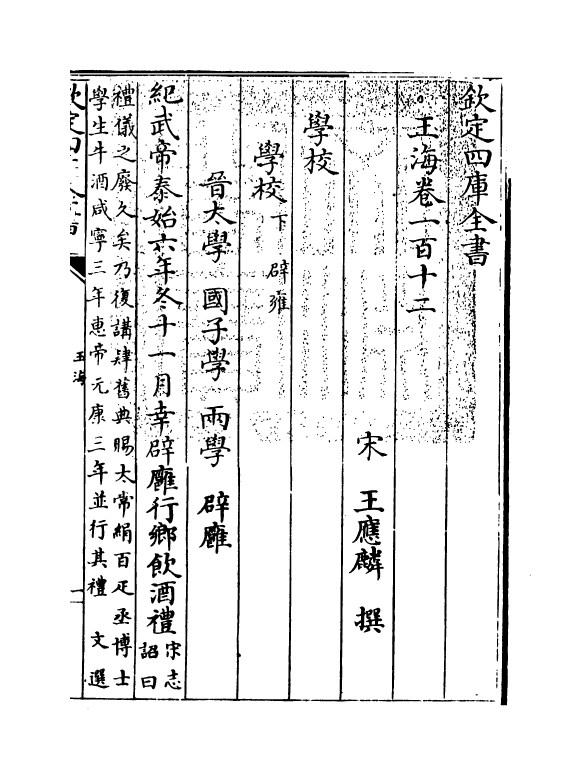 欽定四庫全書
玉海卷一百十二
宋 王應麟 撰
學校
學校下 辟雍
晉太學 國子學 兩學 辟廱
紀武帝泰始六年冬十一月幸辟廱行鄉飲酒禮宋志詔曰
禮儀之廢久矣乃復講肄舊典賜太常絹百疋丞博士
學生牛酒咸寧三年惠帝元康三年並行其禮 文選
玉海
一